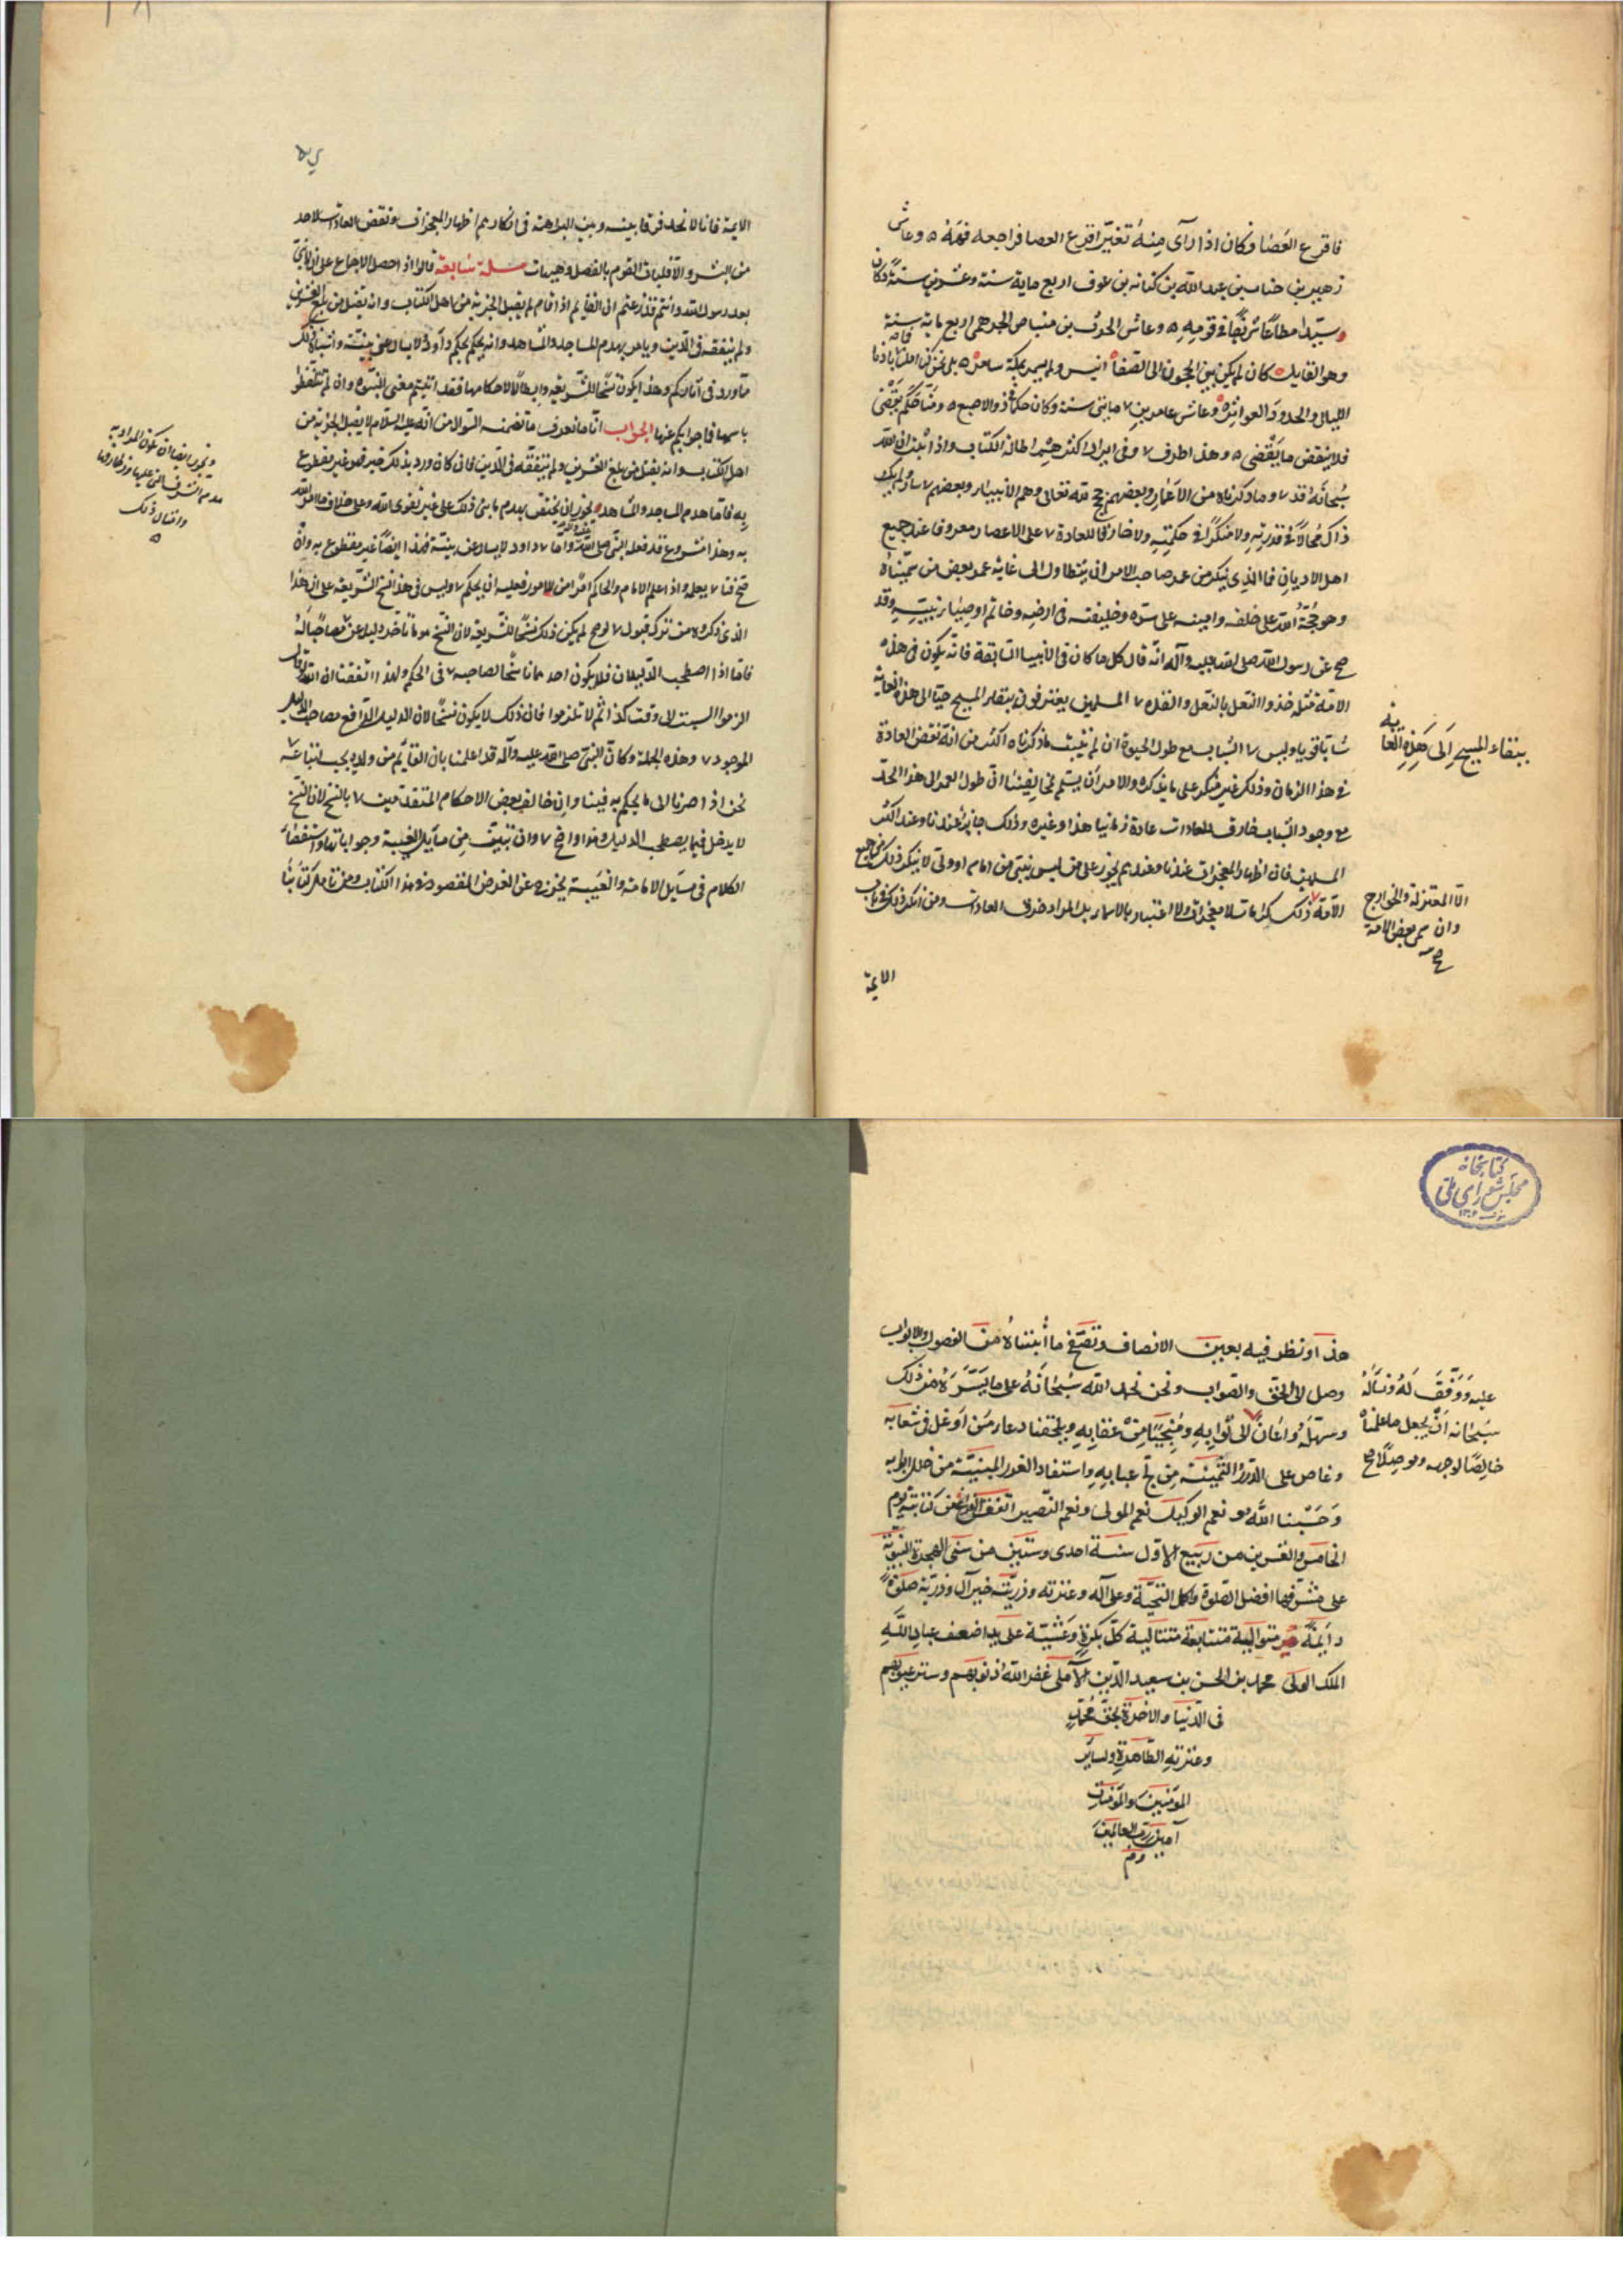 فاقرع العصا وكان اذا رآى مِنهُ تغيّرًا قرع العصا فراجعه فهمهُ ٥ وعاش
زهير بن جناب بن عبد الله بن كنانه بن عوف اربع ماية سنة وعشرين سنة وكان
سيّدا مطاعًا شريفًا في قومِهِ ٥ وعاش الحرث بن مضاض الجرهمى اربع ماية سنة
وهو القايل ٥ كان لم يكن بين الحجون الى الصّفا انيس ولم يسمر بمكّة سامر ٥ بلى نحن كنّا اهلها فابادنا
الليالى والجدود العواثر ٥ وعاش عامر بن مايتى سنة وكان حكما ذو الاصبع ٥ ومنّا حَكَم يَقْضى
فلا ينقض ما يَقْضى ٥ وهذا طرف وفى ايراد اكثر مِنه اطالة الكتاب واذا ثبت ان الله
سُبحانهُ قد وما ذكرناه من الاعمار وبعضهم حجج لله تعالى وهم الانبياء وبعضهم ولم يك
ذاك مُحالاً فى قدرتِهِ ولا منكرًا فى حكمتِهِ ولا خارقا للعادة على الاعصار معروفا عند جميع
اهل الاديان فما الذى ينكر من عمر صاحب الامر ان يتطاول الى غاية عمر بعض من سمّيناهُ
وهو حجّةُ الله على خلقه وامينه على سرّه وخليفته فى ارضِه وخاتم اوصِياء نبيّهِ وقد
صح عن رسول الله صلى الله عليه وآله انّه قال كل ما كان فى الأنبياء السابقة فانّه يكون فى هذه
الامّة مثله حذو النعل بالنعل والقذة المسلمين يعترفون ببقاء المسيح حيًّا الى هذه الغاية
بِبَقاء المسيح اِلَى هَذِهِ الغاية
شابّا قويا وليس الشباب مع طول الحيوة ان لم يثبت ما ذكرناه اكثر من انه نقض العادة
فى هذا الزمان وذلك غير منكر على ما نذكره والامر ان يتم لمخالفينا ان طول العمر الى هذا الحدّ
مع وجود الشّباب خارق للعادات عادة زماننا هذا وغيره وذلك جايز عندنا وعند اكثر
المسلمين فان اظهار المعجزات عندنا وعندهم يجوز على من ليس بنبى من امام او ولى لا ينكر ذلك من جميع
الامّة ذلك كرامات لا معجزات ولا اعتبار بالاسماء بل المراد خرق العادات ومن انكر ذلك فى باب
الاّ المعتزلة والخوارج
وان سمى بعض الامة
صح
الايمة
الايمة فانا لا نجد فرقا بينه وبين البراهمة فى انكارهم اظهار المعجزات ونقض العادات لاحد
من البشر والا فليات القوم بالفصل وهيهات مسلة سَابعة قالوا اذا حصل الاجماع على ان لا نبىّ
بعد رسول الله وانتم قد زعمتم ان القايم اذا قام لم يقبل الجزية من اهل الكتاب وانه يقتل من بلغ العشرين
ولم يتفقه فى الدّين ويامر بهدم المساجد والمشاهد وانه يحكم بحكم داود لا يسال عن بيّنة واشباه ذلك
ممّا ورد فى آثاركم وهذا يكون نسخًا للشّريعة وابطالًا لاحكامها فقد اثبتّم معنى النبوّه وان لم تتلفّظوا
باسمها فما جوابكم عنها الجَواب انّا ما نعرف ما تضمنه السّوال من انه عليه السلام لا يقبل الجزية من
اهل الكتاب وانه يقتل من بلغ العشرين ولم يتفقّه فى الدّين فان كان ورد بذلك خبر فهو غير مقطوع
بِه فاما هدم المساجد والمشاهد يجوز ان يختص بهدم ما بنى من ذلك على غير تقوى الله وعلى خلاف ما امر الله
به وهذا مشروع قد فعله النبى صلى الله عليه وآله واما داود لا يسال عن بيّنة فهذا ايضًا غير مقطوع به وان
صح فتا يعلمه واذا علم الامام والحاكم امرًا من الامور فعليه ان يحكم وليس فى هذا نسخ الشريعة على ان هذا
الذى ذكروه من ترك قبول لوصح لم يكن ذلك نسخًا للشّريعة لان النسخ هو ما تاخر دليله عن مصاحبًا لهُ
فامّا اذا اصطحب الدّليلان فلا يكون احدهما ناسخًا لصاحبه فى الحكم ولهذا اتفقنا ان الله لو قال
الزموا السبت الى وقت كذا ثم لا تلزموا فان ذلك لا يكون نسخًا لان الدليل الرافع مصاحب للدليل
الموجود وهذه الجملة وكان النبى صلى الله عليه وآله قد اعلمنا بان القايم من ولده يجب اتباعه
نحن اذا صرنا الى ما يحكم به فينا وان خالف بعض الاحكام المتقدّمين بالنسخ لان النسخ
لا يدخل فيما يصطحب الدليل هذا واضح وان تبيّن من مسايل الغيبة وجواباتها واستقصاء
الكلام فى مسَايل الامامة والغَيبة يخرج عن الغرض المقصود فى هذا الكتاب ومن تامل كتابنا
ويجوز ايضا ان يكون المراد به
هدم الشرفات التى عليها وزخارفها
وامثال ذلك
هذا ونظر فيه بعين الانصاف وتصَفّح ما أثبتناهُ من الفصول والابواب
وصل الى الحق والصّواب ونحن نحمد الله سُبْحانَهُ على ما يسَّرَهُ من ذلك
عليه وَوَفّقَ لَهُ ونسالُهُ
سبحانه اَنْ يجعل ما علمناهُ
خالِصًا لوجهه وموصِلًا صح
وسَهّلَهُ وَاعَان الى ثوابِهِ ومُنجيًا مِنْ عقابِهِ ويلحقنا دعاء مَن اَوغل فى شعابه
وغاص على الدّرر الثّمينَة مِن لج عبابِهِ واستفاد الغرر المبنيّة من خلل ابوابه
وَحَسْبنا اللهُ هو نعم الوكيل نعم المولى ونعم النّصير اتفق الفراغ عن كتابته يوم
الخامس والعشرين من ربيع الاوّل سنة احدى وستّين من سنى الهجرة النبويّة
على مشرّفها افضل الصّلوة واكمل التحيّة وعلى آله وعترته وذريّته خير آل وذريّة صَلوةً
دايمَةً متوالية متتابعة متتالية كلّ بكرةٍ وعَشيّة على يد اضعف عبادِ اللهِ
الملك الولى محمد بن الحسن بن سعيد الدّين الآملى غفر اللهُ ذنوبهم وستر عيوبهم
فى الدّنيا والاخرة بحق مُحمّدٍ
وعترتهِ الطّاهرةِ ولساير
المؤمنينَ والمؤمنات
آمين ربّ العالمينَ
كتابخانه
مجلس شوراى ملّى